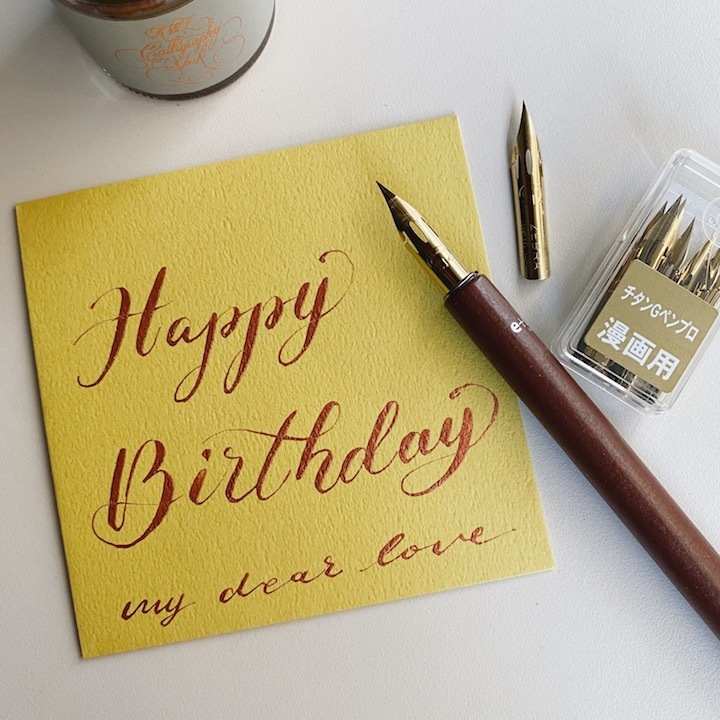 Calligraphy
Ink
Happy
Birthday
my dear love
ZEBRA
チタンGペンプロ
漫画用